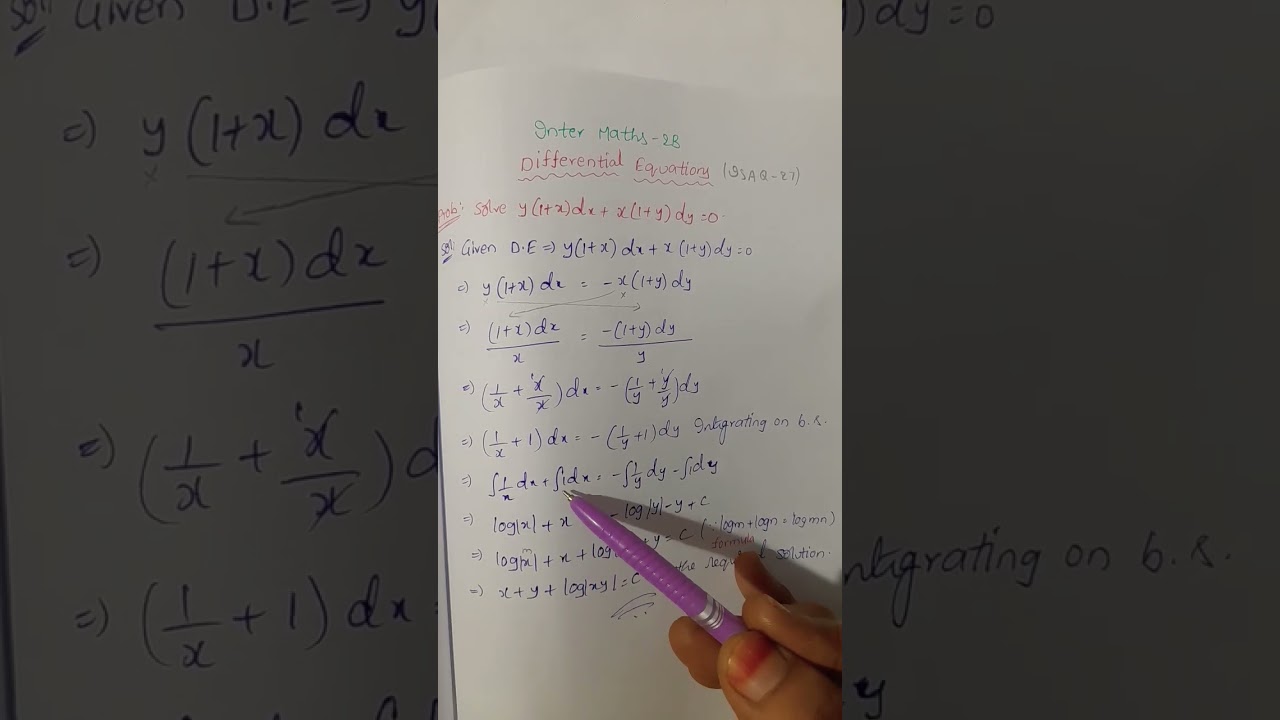 Inter Maths-2B
Differential Equations (VSAQ-27)
Prob: Solve y(1+x)dx + x(1+y)dy=0.
Sol: Given D.E ⇒ y(1+x)dx + x(1+y)dy=0
⇒ y(1+x)dx = -x(1+y)dy
⇒ (1+x)dx/x = -(1+y)dy/y
⇒ (1/x + x/x)dx = -(1/y + y/y)dy
⇒ (1/x + 1)dx = -(1/y + 1)dy Integrating on b.s.
⇒ ∫1/x dx + ∫1dx = -∫1/y dy - ∫1dy
⇒ log|x| + x - log|y| - y + C
⇒ log|x| + x + log + y = C (∵ logm + logn = log mn)
formula
⇒ x + y + log|xy| = C the solution.